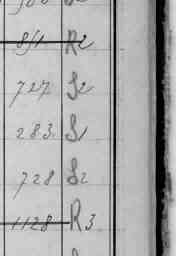 851 R2
727 S2
283 S1
728 S2
1128 R3